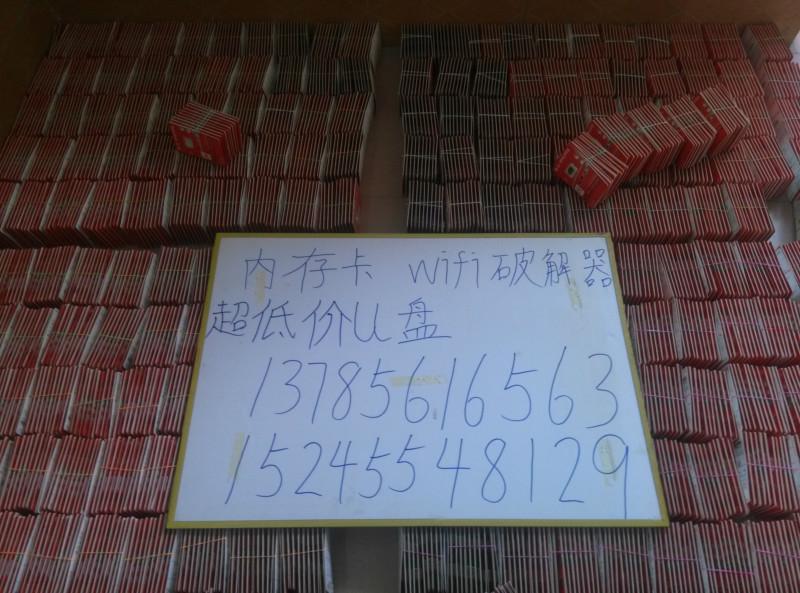 内存卡 wifi破解器
超低价U盘
13785616563
15245548129